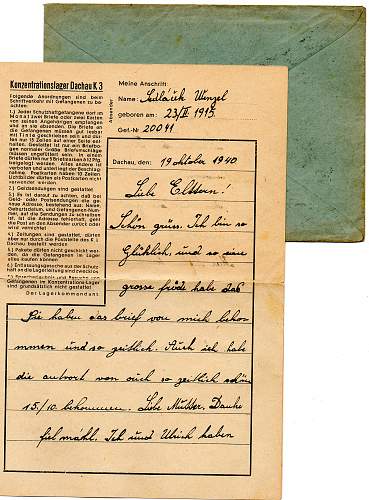 Konzentrationslager Dachau K 3
Folgende Anordnungen sind beim
Schriftverkehr mit Gefangenen zu be-
achten:
1.) Jeder Schutzhaftgefangene darf im
Monat zwei Briefe oder zwei Karten
von seinen Angehörigen empfangen
und an sie absenden. Die Briefe an
die Gefangenen müssen gut lesbar
mit Tinte geschrieben sein und dür-
fen nur 15 Zeilen auf einer Seite ent-
halten. Gestattet ist nur ein Briefbo-
gen normaler Größe. Briefumschläge
müssen ungefüttert sein. In einem
Briefe dürfen nur 5 Briefmarken à 12 Pfg.
beigelegt werden. Alles andere ist
verboten und unterliegt der Beschlag-
nahme. Postkarten haben 10 Zeilen.
Lichtbilder dürfen als Postkarten nicht
verwendet werden.
2.) Geldsendungen sind gestattet.
3.) Es ist darauf zu achten, daß bei
Geld- oder Postsendungen die ge-
naue Adresse, bestehend aus: Name,
Geburtsdatum und Gefangenen-Num-
mer, auf die Sendungen zu schreiben
ist. Ist die Adresse fehlerhaft, geht
die Post an den Absender zurück oder
wird vernichtet.
4.) Zeitungen sind gestattet, dürfen
aber nur durch die Poststelle des K L
Dachau bestellt werden.
5.) Pakete dürfen nicht geschickt wer-
den, da die Gefangenen im Lager
alles kaufen können.
6.) Entlassungsgesuche aus der Schutz-
haft an die Lagerleitung sind zwecklos.
7.) Sprecherlaubnis und Besuche von
Gefangenen im Konzentrations-Lager
sind grundsätzlich nicht gestattet.
Der Lagerkommandant
Absender
Meine Anschrift:
Name: Sedláček Wenzel
geboren am: 23/III. 1915.
Gef.-Nr 20041
Dachau, den 19 oktober 1940
Liebe Elstern!
Schön grüss. Ich bin so
Glücklich, und so eine
grosse früde habe das
Sie habe das brief von mich beko-
mmen und so zeitlich. Auch ich habe
die antvort von euch so zeitlich schön
15./10. bekommen. Liebe Mutter. Danke
fielmáhl. Ich und Ulrich haben